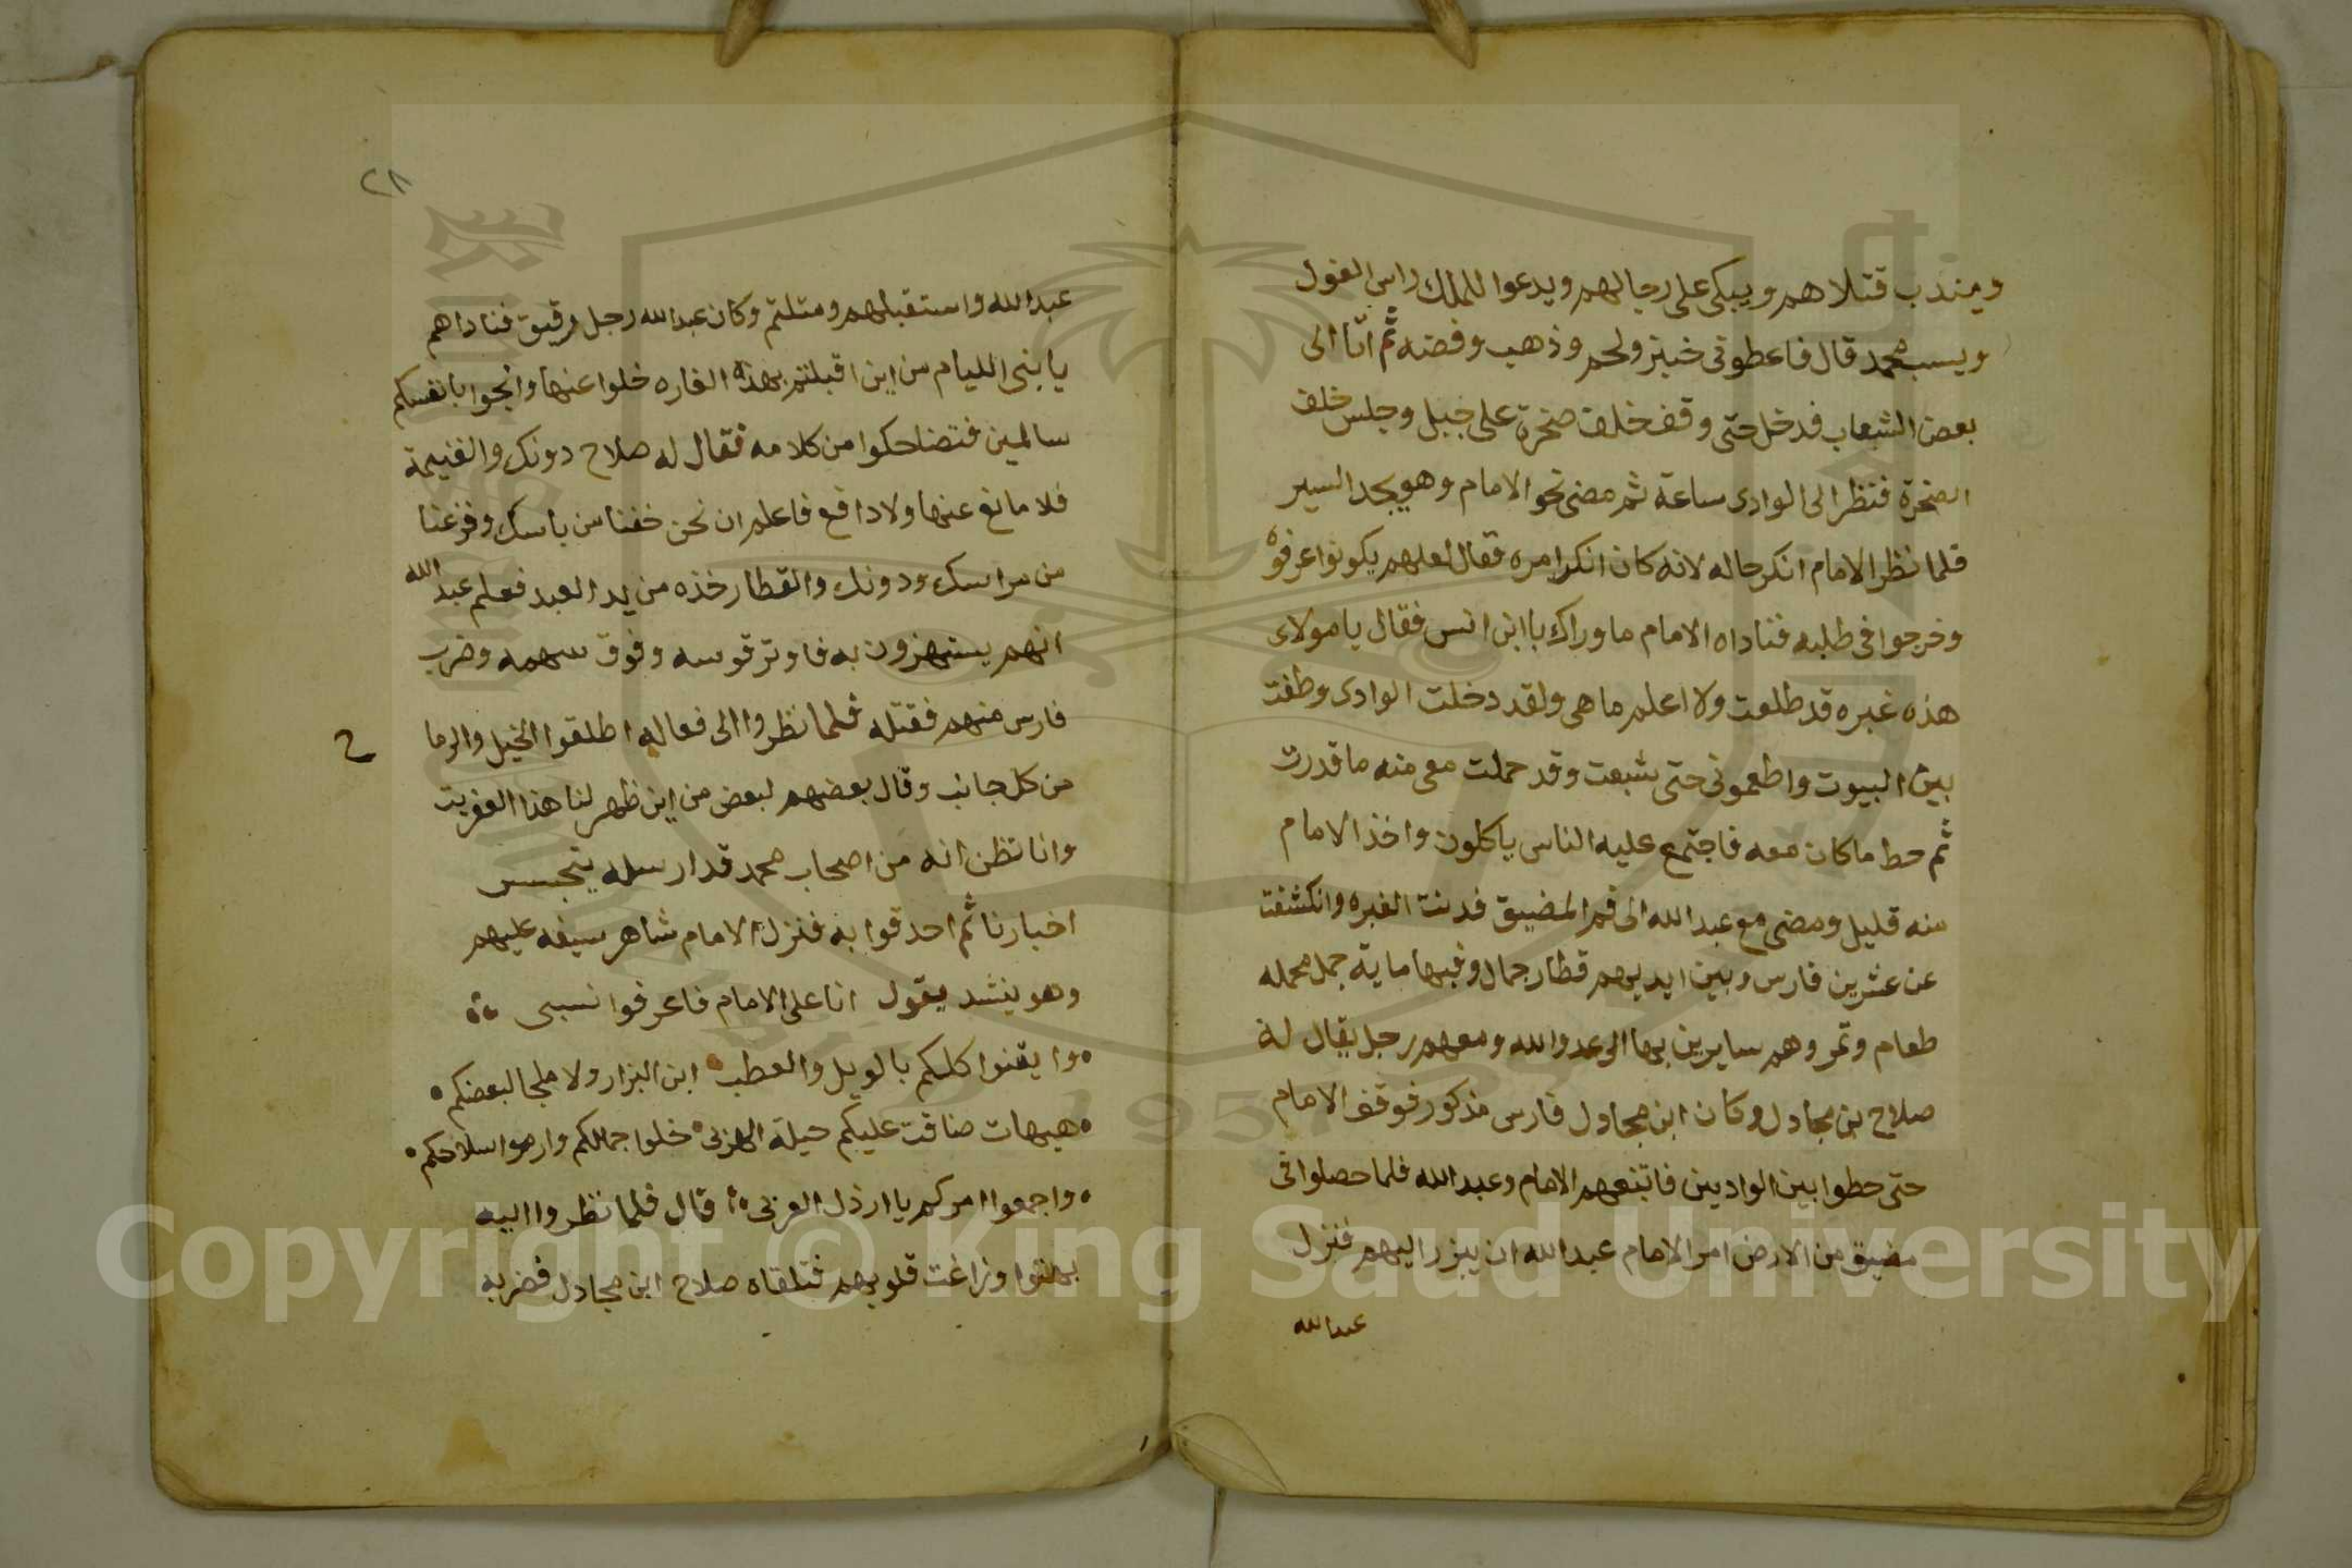 ويندب قتلاهم ويبكى على رجالهم ويدعوا للملك راس الغول
ويسب محمد قال فاعطونى خبز ولحم وذهب وفضه ثم اتا الى
بعض الشعاب فدخل حتى وقف خلف صخرة على جبل وجلس خلف
الصخرة فنظر الى الوادى ساعة ثم مضى نحو الامام وهو يجد السير
فلما نظر الامام انكر حاله لانه كان انكر امره فقال لعلهم يكونوا عرفوه
وخرجوا فى طلبه فناداه الامام ما وراك يا ابن انس فقال يا مولاى
هذه غبره قد طلعت ولا اعلم ما هى ولقد دخلت الوادى وطفت
بين البيوت واطعمونى حتى شبعت وقد حملت معى منه ما قدرت
ثم حط ما كان معه فاجتمع عليه الناس ياكلون واخذ الامام
منه قليل ومضى مع عبد الله الى فم المضيق فدنت الغبره وانكشفت
عن عشرين فارس وبين ايديهم قطار جمال وفيها ماية جمل محمله
طعام وتمر وهم سايرين بها الى عدو الله ومعهم رجل يقال له
صلاح بن مجادل وكان ابن مجادل فارس مذكور فوقف الامام
حتى حطوا بين الواديين فاتبعهم الامام وعبد الله فلما حصلوا فى
مضيق من الارض امر الامام عبد الله ان يبزر اليهم فنزل
عبد الله
٢٨
عبد الله واستقبلهم ومتلثم وكان عبد الله رجل رقيق فناداهم
يا بنى الليام من اين اقبلتم بهذه الغاره خلوا عنها وانجوا بانفسكم
سالمين فتضاحكوا من كلامه فقال له صلاح دونك والغنيمة
فلا مانع عنها ولا دافع فاعلم ان نحن خفنا من باسك وفزعنا
من مراسك ودونك والقطار خذه من يد العبد فعلم عبد الله
انهم يستهزون به فاوتر قوسه وفوق سهمه وضرب
فارس منهم فقتله فلما نظروا الى فعاله اطلقوا الخيل والرما
ح
من كل جانب وقال بعضهم لبعض من اين ظهر لنا هذا العفريت
وانا نظن انه من اصحاب محمد قد ارسله يتجسس
اخبارنا ثم احدقوا به فنزل الامام شاهر سيفه عليهم
وهو ينشد يقول انا على الامام فاعرفوا نسبى
وايقنوا كلكم بالويل والعطب ابن النزار ولا ملجا لبعضكم
هيهات ضاقت عليكم حيلة الهزبى خلوا جمالكم وارموا سلاحكم
واجمعوا امركم يا ارذل العربى قال فلما نظروا اليه
بهتوا وزاغت قلوبهم فتلقاه صلاح ابن مجادل فضربه
Copyright © King Saud University
1957